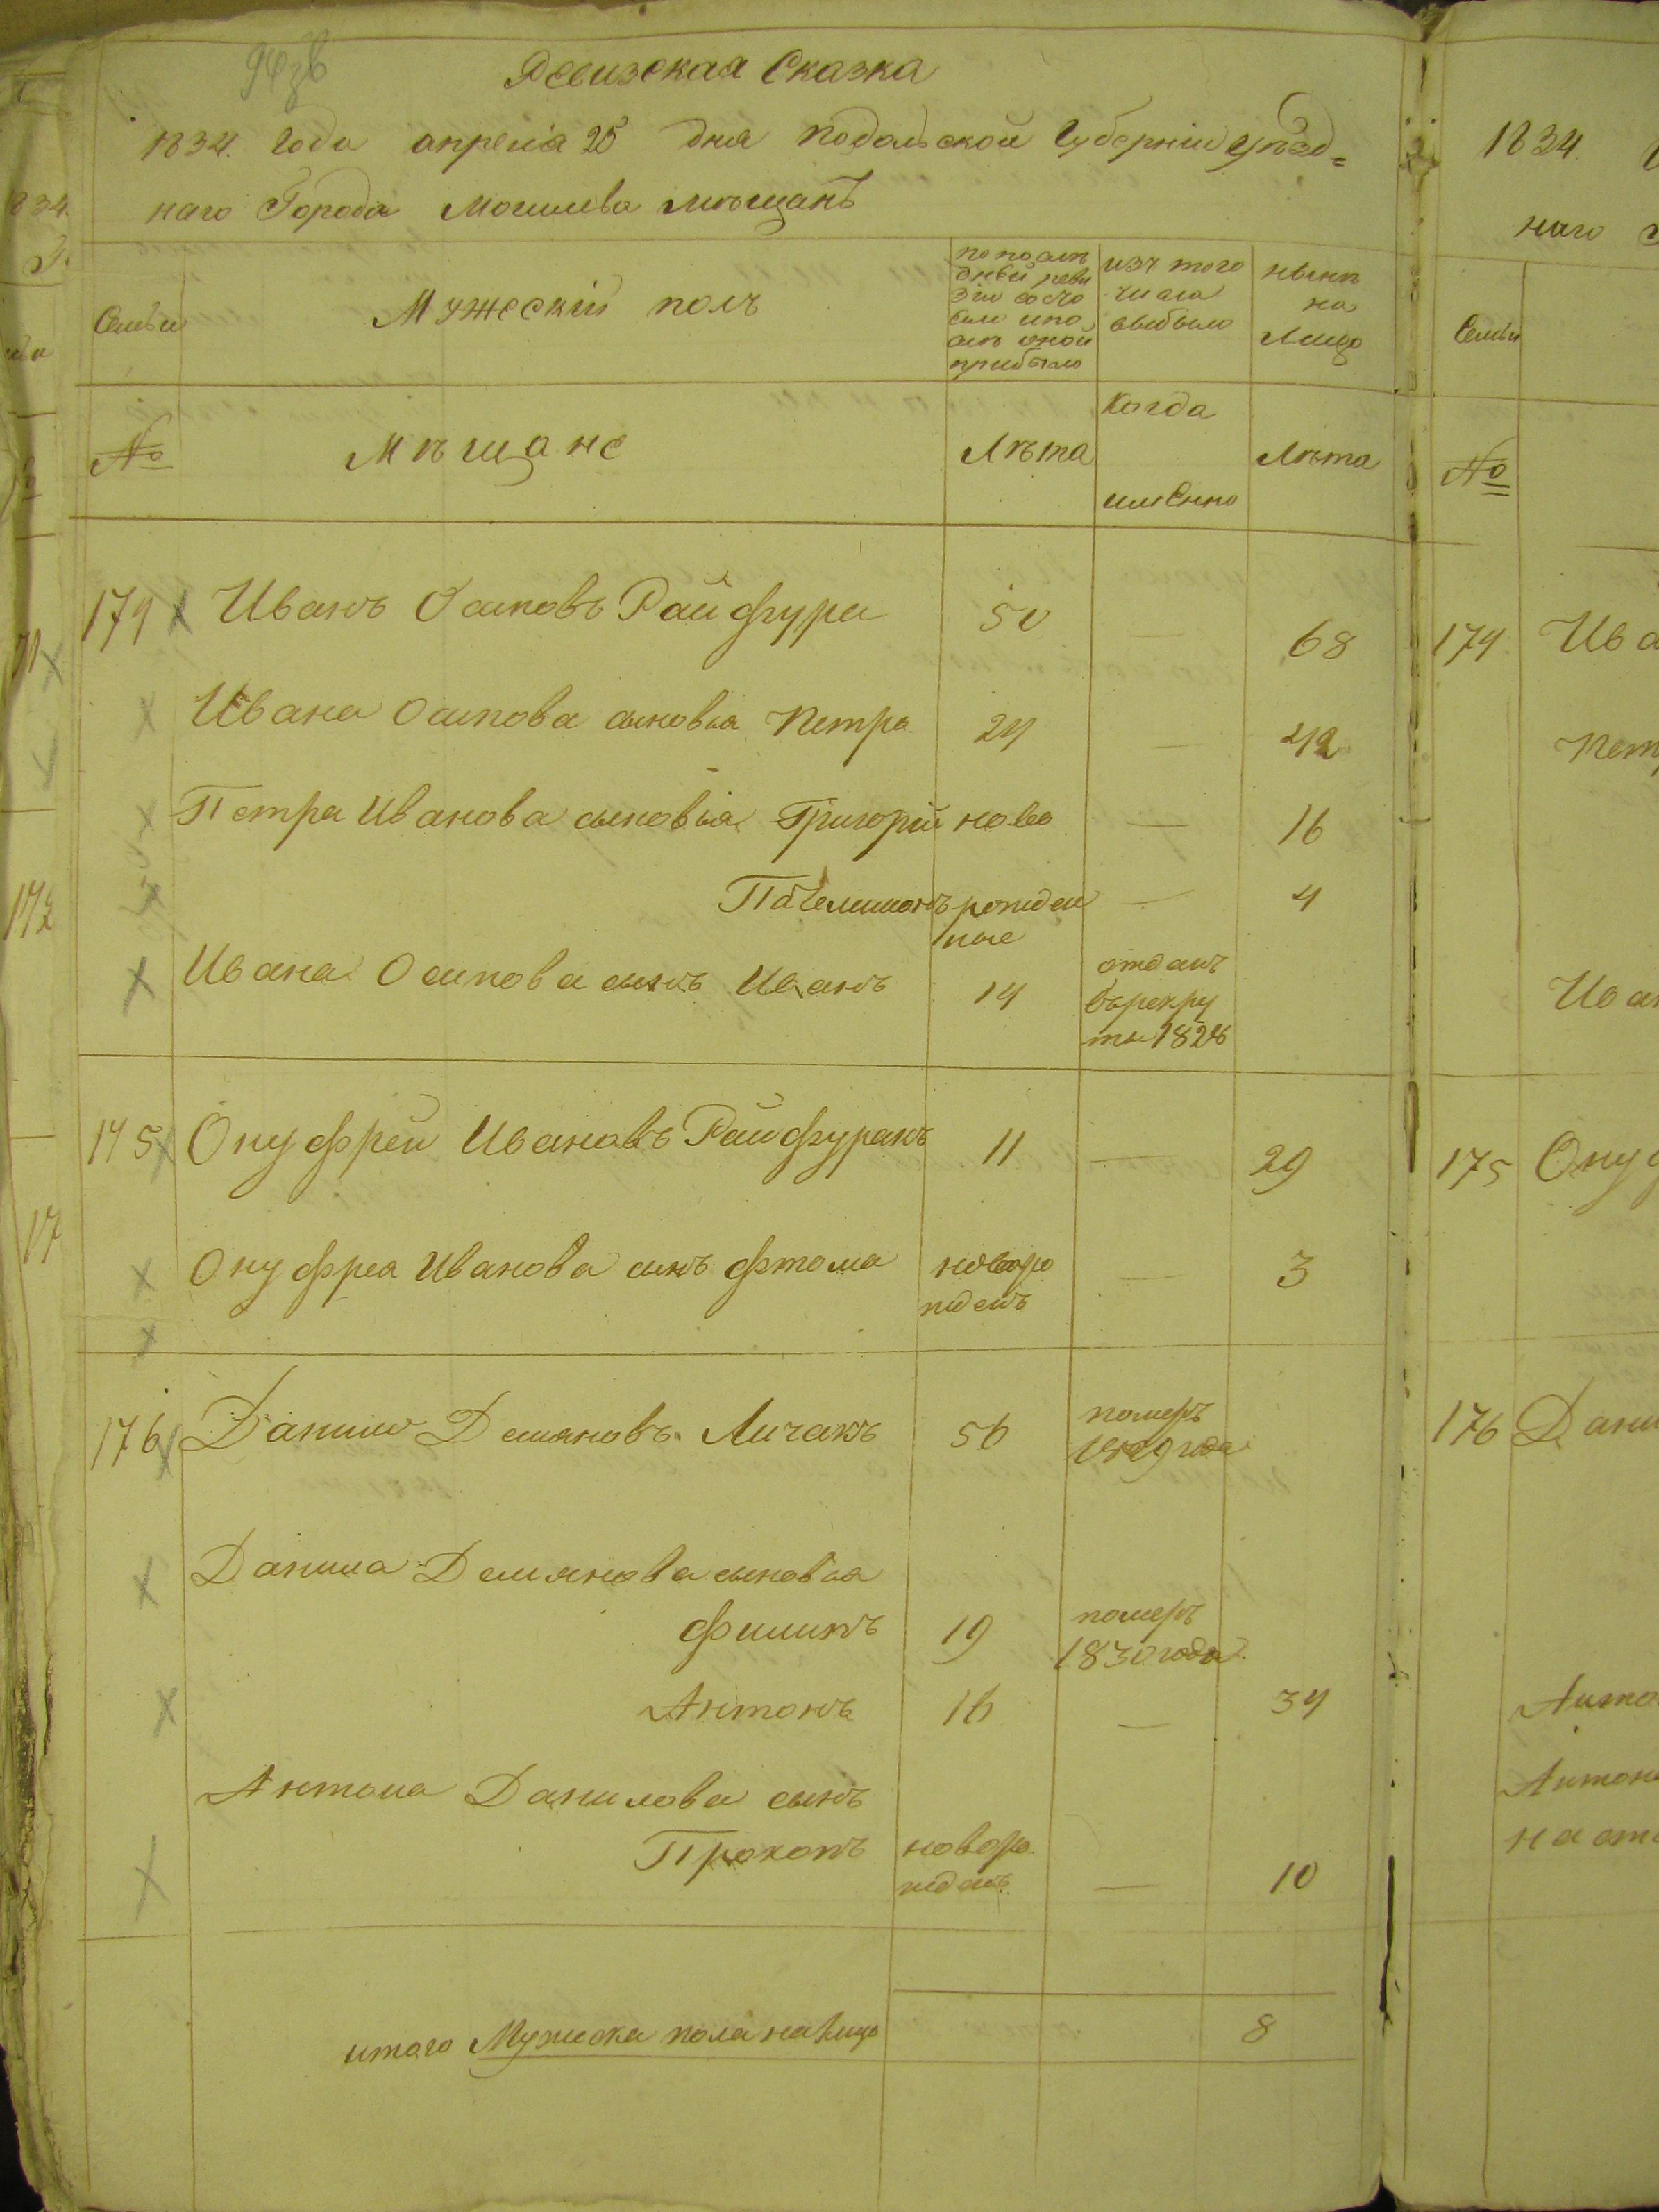 Ревизская Сказка
1834. года апреля 25 дня подольской Губернии уѣзд=
наго Города Могилева мѣщанъ
Семьи
Мужескій полъ
по послѣ
дней реви
зіи состо
яли и по
слѣ оной
прибыло
изъ того
числа
выбыло
нынѣ
на
лицо
№
Мѣщане
Лѣта
Когда
именно
Лѣта
174 Иванъ Осиповъ Райфура 50 — 68
Ивана Осипова сыновья Петръ 24 — 42
Петра Иванова сыновья Григорій ново — 16
рожден — 4
ные
Ивана Осипова сынъ Иванъ 14
отданъ
въ рекру
ты 1828
175 Онуфрей Ивановъ Райфуракъ 11 — 29
Онуфрея Иванова сынъ Фтома новоро — 3
жденъ
176 Данило Демяновъ Личакъ 56
померъ
1829 года
Данила Демянова сыновья
Филипъ 19
померъ
1830 года
Антонъ 16 — 34
Антона Данилова сынъ
Прокопъ новоро
жденъ — 10
итого Мужеска пола на лицо 8
1834
наго
Семьи
№
174 Ива
Петр
Иван
175 Онуф
176 Дани
Анто
Антона
834.
172
17